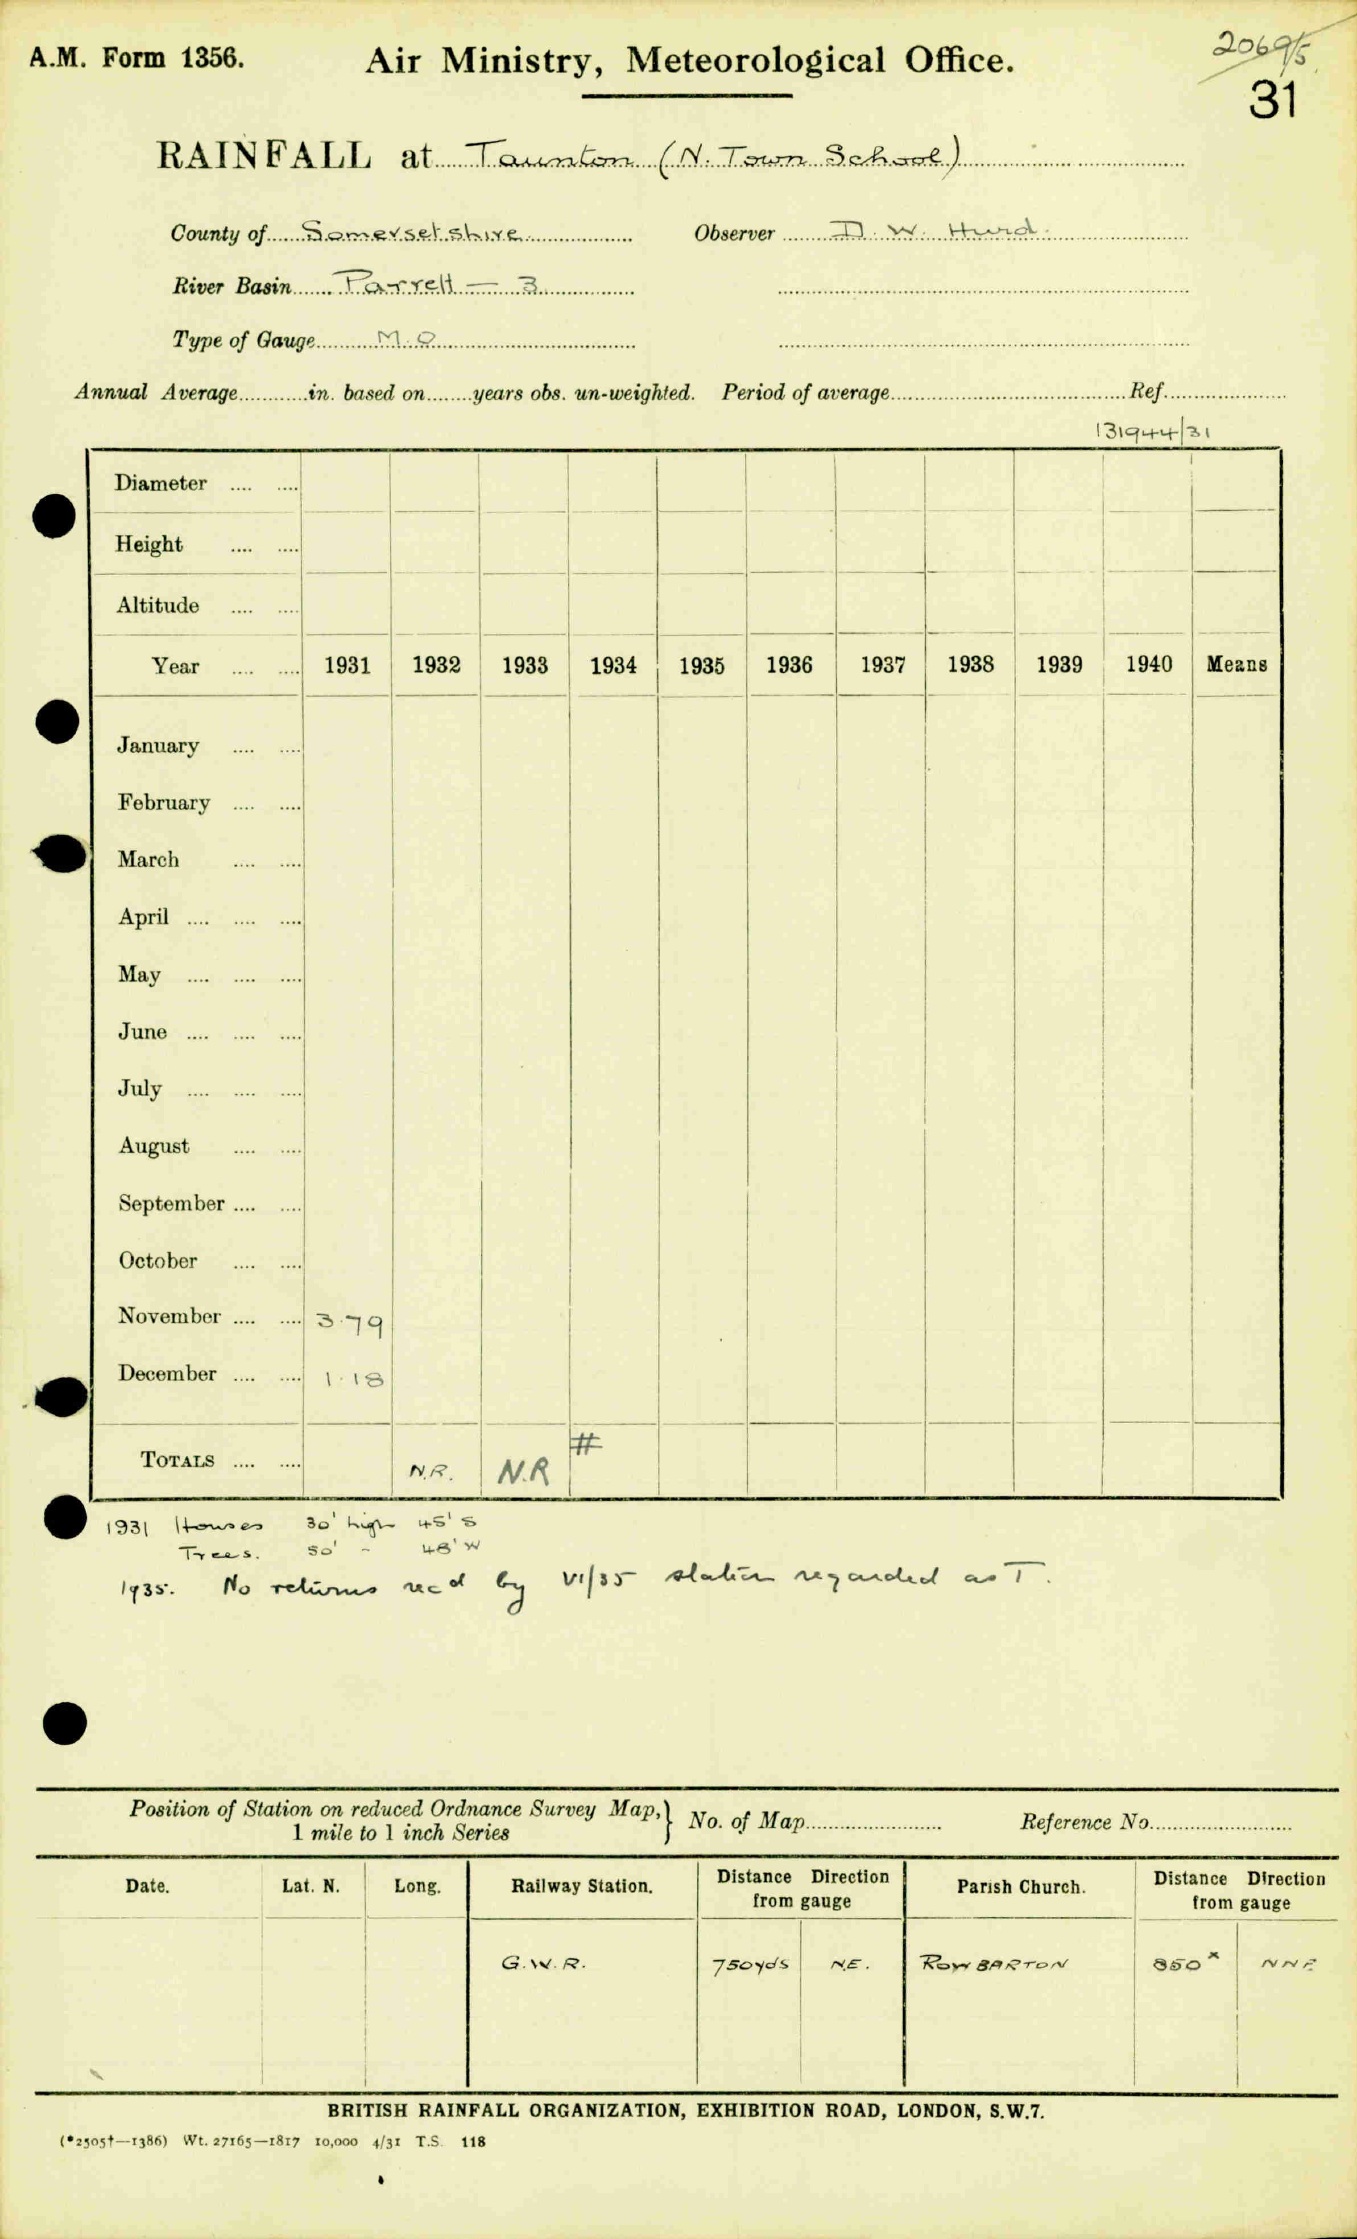 A.M. Form 1356. Air Ministry, Meteorological Office. 2069/5
31
RAINFALL at Taunton (N. Town School)
County of Somersetshire Observer D. W. Hurd.
River Basin Parrett — 3
Type of Gauge M.O
Annual Average in. based on years obs. un-weighted. Period of average Ref.
131944/31
Diameter
Height
Altitude
Year 1931 1932 1933 1934 1935 1936 1937 1938 1939 1940 Means
January
February
March
April
May
June
July
August
September
October
November 3.79
December 1.18
#
TOTALS N.R. N.R
1931 Houses 30' high 45' S
Trees. 50' - 48' W
1935. No returns rec'd by VI/35 station regarded as T.
Position of Station on reduced Ordnance Survey Map, } No. of Map Reference No.
1 mile to 1 inch Series
Date. Lat. N. Long. Railway Station. Distance Direction from gauge Parish Church. Distance Direction from gauge
G.W.R. 750yds N.E. ROWBARTON 850ˣ NNE
BRITISH RAINFALL ORGANIZATION, EXHIBITION ROAD, LONDON, S.W.7.
(*2505†—1386) Wt. 27165—1817 10,000 4/31 T.S. 118